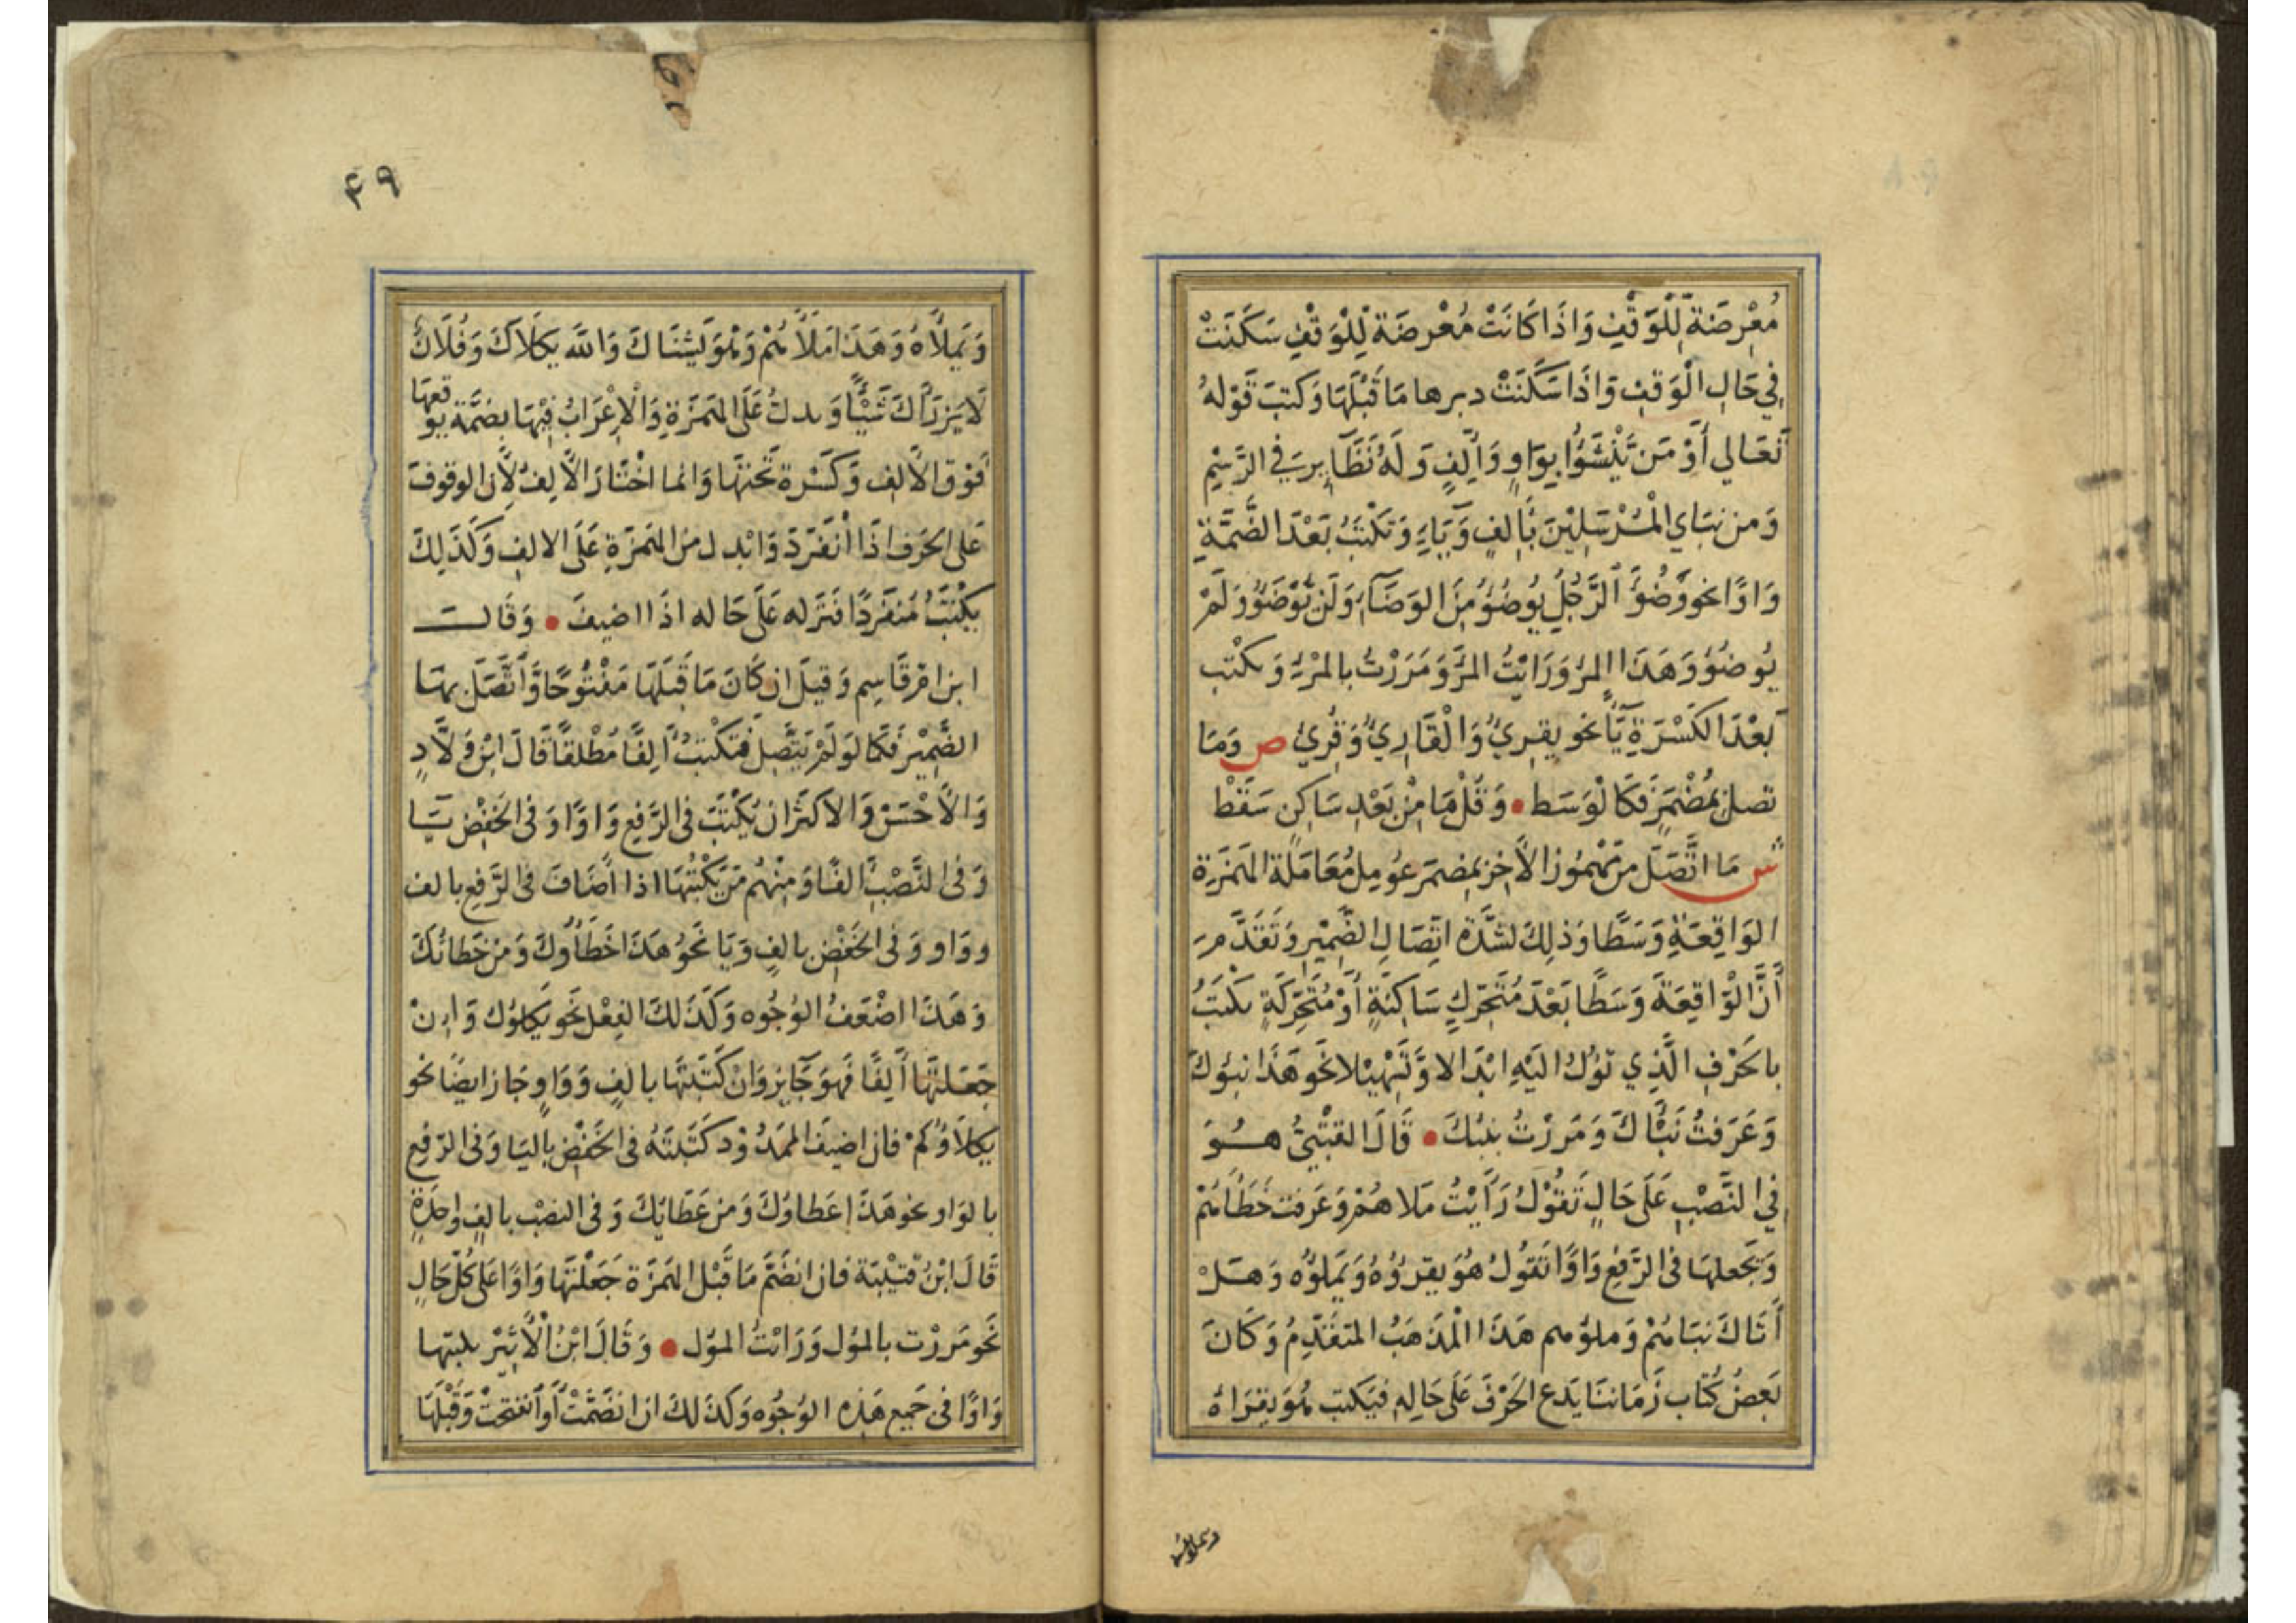 مُعْرِضَة لِلْوَقْفِ وَاذَا كَانَتْ مُعْرضَة لِلْوَقْفِ سَكَنَتْ
فِي حَالِ الْوَقفِ وَاذَا سَكَنَتْ دبرها مَا قَبْلَهَا وَكتبَ قَوْلهُ
تَعَالي أَوْ مَنْ يَنْشَؤُا بِوَاوٍ وَأَلِفٍ وَلَهُ نَظَآيِر فِي الرَّسْمِ
وَمن نبَاي الْمُرْسَلِيْنَ بِأَلِفٍ وَيَاءٍ وَتكْتبُ بَعْدَ الضَّمَّةِ
وَاوًا نحو وَضُؤَ الرَّجُلُ يُوضُؤُ مِنَ الوَضَآءِ وَلَن يُوْضَؤَ وَلَمْ
يُوضُؤ وَهَذَا المرؤ وَرَايْتُ المرَّ وَمَرَرْتُ بالمرْءِ وَيكتب
بَعْدَ الكَسْرَةِ يَآءً نحو يقِريُ وَالْقَارِيُ وَقُرِيَ ص وَمَا
تصل بمُضْمَرٍ فَكَا لْوَسَط • وَقَلْمَا مِنْ بَعْدِ سَاكِنٍ سَقَطْ
ش مَا اتَّصَلَ من مَهْمُوز الأَخِر بمضمَر عُومِل مُعَامَلَة الهَمزَةِ
الوَاقِعَةِ وَسَطًا وَذلِكَ لشدَّة اتِّصَالِ الضَّمِيْرِ وَتَقَدَّمَ
أَنَّ الْوَاقِعَةَ وَسَطًا بَعْدَ مُتَحَرِّكٍ سَاكِنَةٍ أَوْ مُتَحَرِّكَةٍ تكْتَبُ
بالحَرْفِ الَّذِي تَؤُلُ اليَهِ ابْدَالا وَتَسْهِيْلا نَحو هَذَا نبؤكَ
وَعَرَفْتُ نَبَأكَ وَمَرَرْتُ بنبئكَ • قَالَ القُتَيبيُّ هُوَ
فِي النَّصْبِ عَلَى حَالِ تَقُوْلُ رَأَيْتُ مَلاهُمْ وَعَرَفت خَطَأهُمْ
وَتَجْعلهَا فى الرَّفعِ وَاوًا تَقُولُ هُوَ يقرَؤُهُ وَيَملؤُه وَهَلْ
أَتَاكَ نبَاهُمْ وَملؤهم هَذَا الْمَذهَبُ المتقَدِّمُ وَكَانَ
بَعضُ كُتّاب زَمَاننَا يَدَع الحَرْفَ عَلَى حَالِهِ فيَكتب هُوَ يقرَاهُ
ويملاه
۴۹
وَيَملَأهُ وَهَذَا مَلأهُمْ وَهْوَ يَشْنَاكَ وَاللهُ يَكلَاكَ وَفُلَانٌ
لَا يَزرَأكَ شَيْئًا وَ تدلُ عَلَى الهَمزَةِ وَالْاِعْرَابُ فِيْهَا بضمَّة يوقعهَا
فَوْقَ الأَلِف وَكَسْرة تَحْتهَا وَانما اخْتَارَ الأَلِف لأَن الوقوف
عَلَى الحَرف اذَا انْفَرَدَ وَابْدل من الهَمزَةِ عَلَى الالفِ وَكَذَلِكَ
يكْتَبُ مُنفَرِدًا فَتَركه عَلَى حَاله اذَا اضيفَ • وَقَالَ
ابن امّ قَاسِم وَقيلَ ان كَانَ مَا قَبْلَهَا مَفْتُوحًا وَأَتَّصَلَ بهَا
الضَّمِيْر فَكَمَا لَوَلَمْ يَتَّصِلَ فَتكْتَبُ أَلِفًا مُطْلقًا قَالَ ابْن وَلَّادٍ
وَالأَحْسَن وَالاكثَر ان يُكْتَبَ فى الرَّفع وَاوًا وَفى الخَفْضِ يَا
وَفى النَّصْبِ الفًا وَمِنْهُم مَنْ يَكْتبُهَا اذا أَضَافَ فى الرَّفعِ بالف
ووَاو وَفى الخَفْضِ بالفٍ وَيَا نَحوُ هَذَا خَطَأُوكَ وَمن خَطائكَ
وَهَذَا اضْعَفُ الوُجُوه وَكَذَلكَ الفِعْلُ نحَو يَكلؤك وَانْ
جَعَلتَهَا أَلِفًا فَهوَ جَآيز وَانْ كَتَبتَهَا بالفٍ وَوَاوٍ جَازَ ايضًا نحو
يكلَاؤُكُمْ فان اضيفَ الممدُوْد كَتَبتَهُ فى الخَفْضِ بِاليَا وَفى الرّفع
بالوَاو نحو هَذَا عَطاوُكَ وَمن عَطَايِكَ وَفى النصْب بالفٍ وَاحِدَةٍ
قَالَ ابْنُ قتَيْبَة فان انضَمَّ مَا قَبْلَ الهَمزَة جَعَلْتهَا وَاوًا عَلَى كُلّ حَالٍ
نَحو مَررْت بالمؤل وَرَايْتُ المؤل • وَقَالَ ابْنُ الْأَثِيْر
وَاوًا فى جَمِيع هَذِه الوُجُوه وَكَذلكَ ان انضَمَّتْ أَو أنفتحتْ وَقَبْلهَا